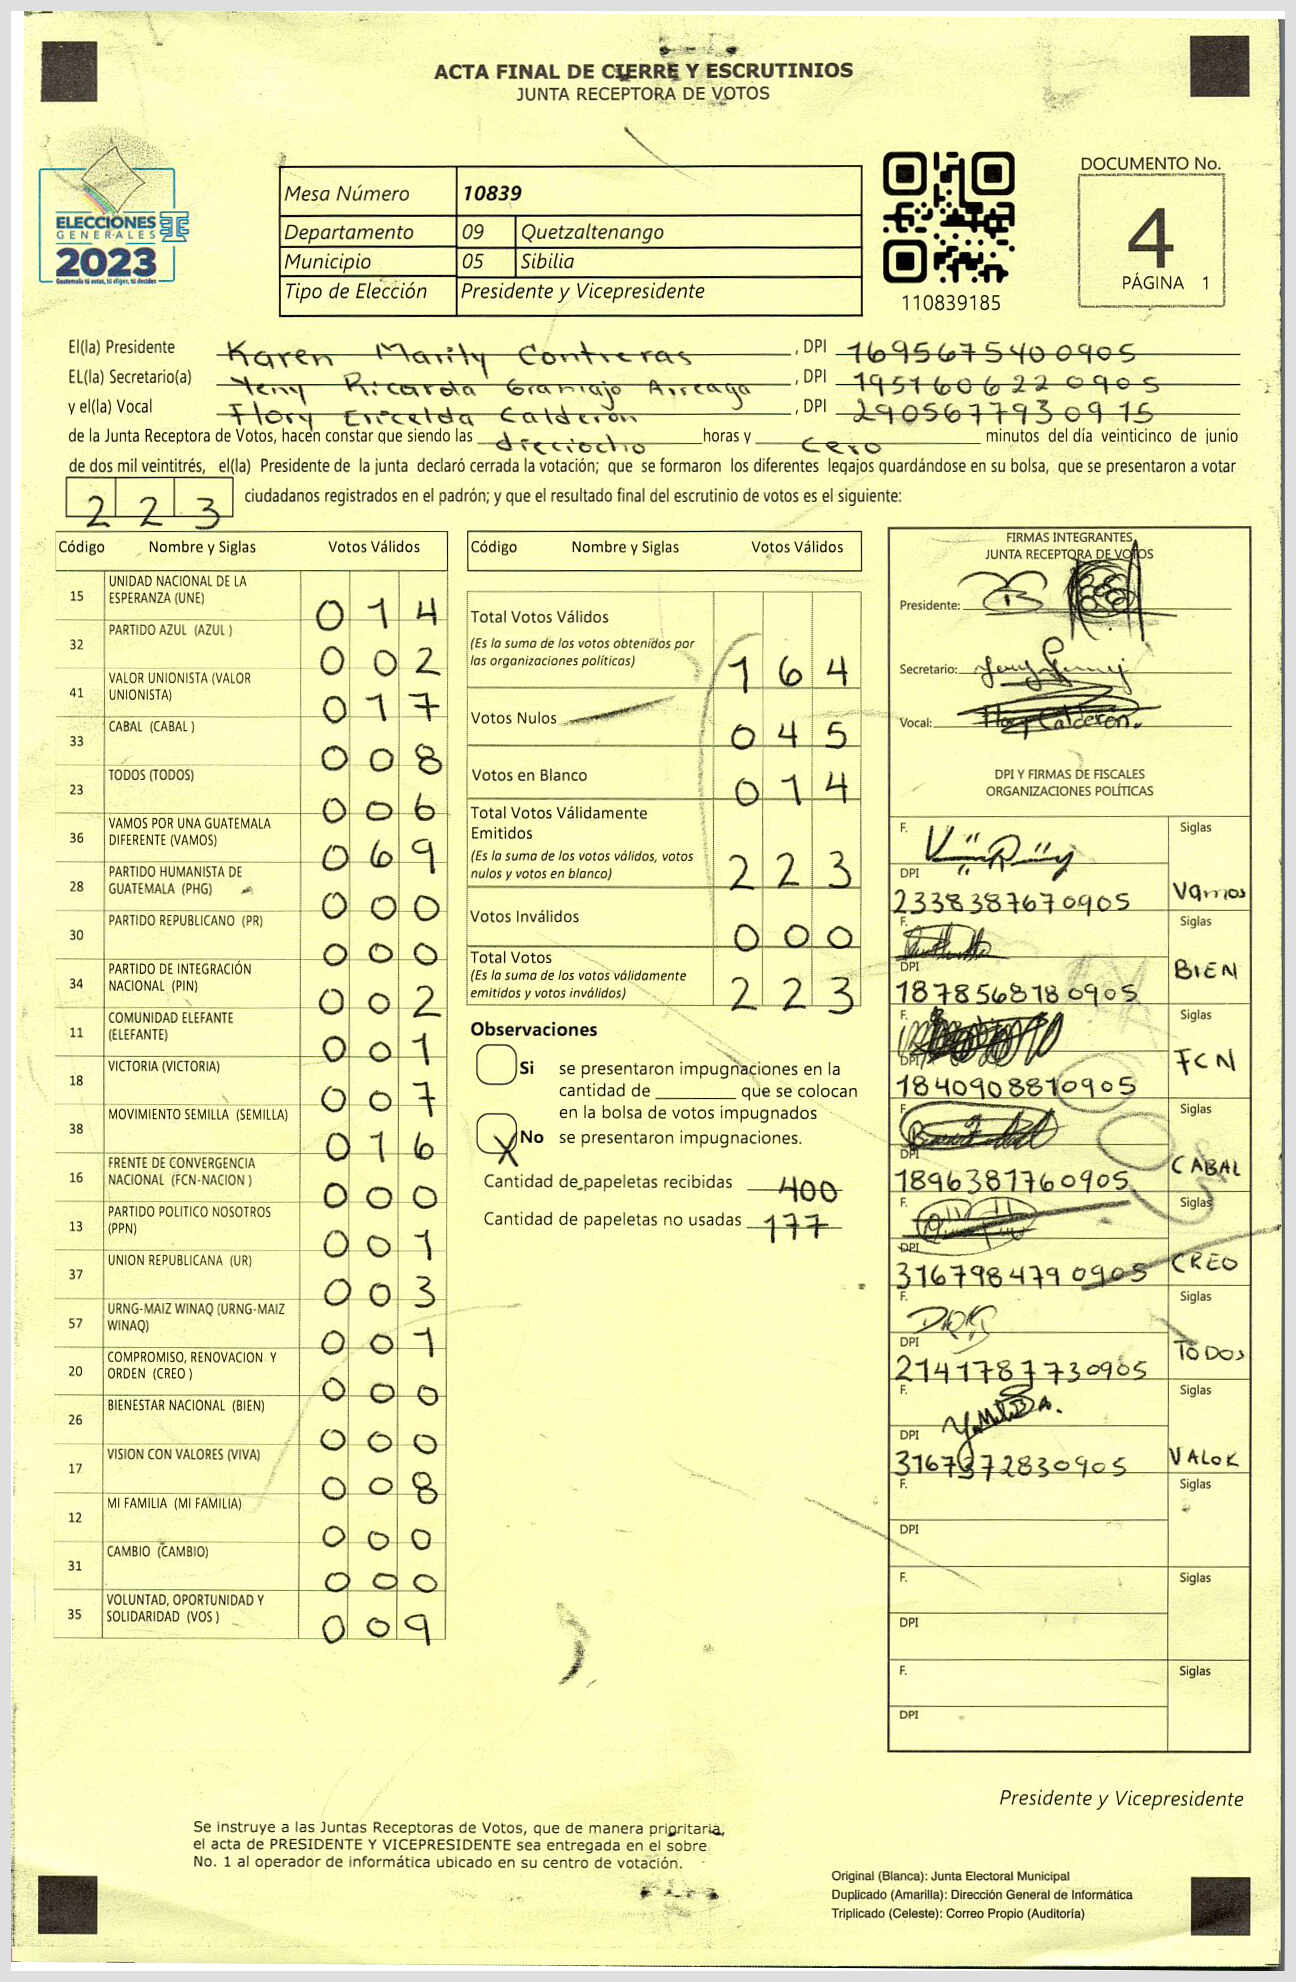 ACTA FINAL DE CIERRE Y ESCRUTINIOS
JUNTA RECEPTORA DE VOTOS
ELECCIONES
GENERALES
2023
Guatemala tú votas, tú eliges, tú decides
Mesa Número 10839
Departamento 09 Quetzaltenango
Municipio 05 Sibilia
Tipo de Elección Presidente y Vicepresidente
110839185
DOCUMENTO No.
4
PÁGINA 1
El(la) Presidente Karen Marily Contreras , DPI 1695675400905
EL(la) Secretario(a) Yeny Ricarda Gramajo Arreaga , DPI 1951606220905
y el(la) Vocal Flory Ericelda Calderón , DPI 2905677930915
de la Junta Receptora de Votos, hacen constar que siendo las dieciocho horas y cero minutos del día veinticinco de junio
de dos mil veintitrés, el(la) Presidente de la junta declaró cerrada la votación; que se formaron los diferentes legajos guardándose en su bolsa, que se presentaron a votar
223 ciudadanos registrados en el padrón; y que el resultado final del escrutinio de votos es el siguiente:
Código Nombre y Siglas Votos Válidos
15 UNIDAD NACIONAL DE LA ESPERANZA (UNE) 014
32 PARTIDO AZUL (AZUL ) 002
41 VALOR UNIONISTA (VALOR UNIONISTA) 017
33 CABAL (CABAL ) 008
23 TODOS (TODOS) 006
36 VAMOS POR UNA GUATEMALA DIFERENTE (VAMOS) 069
28 PARTIDO HUMANISTA DE GUATEMALA (PHG) 000
30 PARTIDO REPUBLICANO (PR) 000
34 PARTIDO DE INTEGRACIÓN NACIONAL (PIN) 002
11 COMUNIDAD ELEFANTE (ELEFANTE) 001
18 VICTORIA (VICTORIA) 007
38 MOVIMIENTO SEMILLA (SEMILLA) 016
16 FRENTE DE CONVERGENCIA NACIONAL (FCN-NACION ) 000
13 PARTIDO POLITICO NOSOTROS (PPN) 001
37 UNION REPUBLICANA (UR) 003
57 URNG-MAIZ WINAQ (URNG-MAIZ WINAQ) 001
20 COMPROMISO, RENOVACION Y ORDEN (CREO ) 000
26 BIENESTAR NACIONAL (BIEN) 000
17 VISION CON VALORES (VIVA) 008
12 MI FAMILIA (MI FAMILIA) 000
31 CAMBIO (CAMBIO) 000
35 VOLUNTAD, OPORTUNIDAD Y SOLIDARIDAD (VOS ) 009
Código Nombre y Siglas Votos Válidos
Total Votos Válidos
(Es la suma de los votos obtenidos por
las organizaciones políticas) 164
Votos Nulos 045
Votos en Blanco 014
Total Votos Válidamente
Emitidos
(Es la suma de los votos válidos, votos
nulos y votos en blanco) 223
Votos Inválidos 000
Total Votos
(Es la suma de los votos válidamente
emitidos y votos inválidos) 223
Observaciones
Si se presentaron impugnaciones en la
cantidad de ________ que se colocan
en la bolsa de votos impugnados
X No se presentaron impugnaciones.
Cantidad de papeletas recibidas 400
Cantidad de papeletas no usadas 177
FIRMAS INTEGRANTES
JUNTA RECEPTORA DE VOTOS
Presidente:
Secretario:
Vocal: Flory Calderón.
DPI Y FIRMAS DE FISCALES
ORGANIZACIONES POLÍTICAS
F. Siglas
DPI
2338387670905 Vamos
F. Siglas
DPI
1878568180905 BIEN
F. Siglas
DPI
1840908810905 FCN
F. Siglas
DPI
1896381760905 CABAL
F. Siglas
DPI
3167984790905 CREO
F. Siglas
DPI
2141787730905 TODOS
F. Siglas
DPI
3167372830905 VALOR
F. Siglas
DPI
F. Siglas
DPI
F. Siglas
DPI
Presidente y Vicepresidente
Se instruye a las Juntas Receptoras de Votos, que de manera prioritaria,
el acta de PRESIDENTE Y VICEPRESIDENTE sea entregada en el sobre
No. 1 al operador de informática ubicado en su centro de votación.
Original (Blanca): Junta Electoral Municipal
Duplicado (Amarilla): Dirección General de Informática
Triplicado (Celeste): Correo Propio (Auditoría)